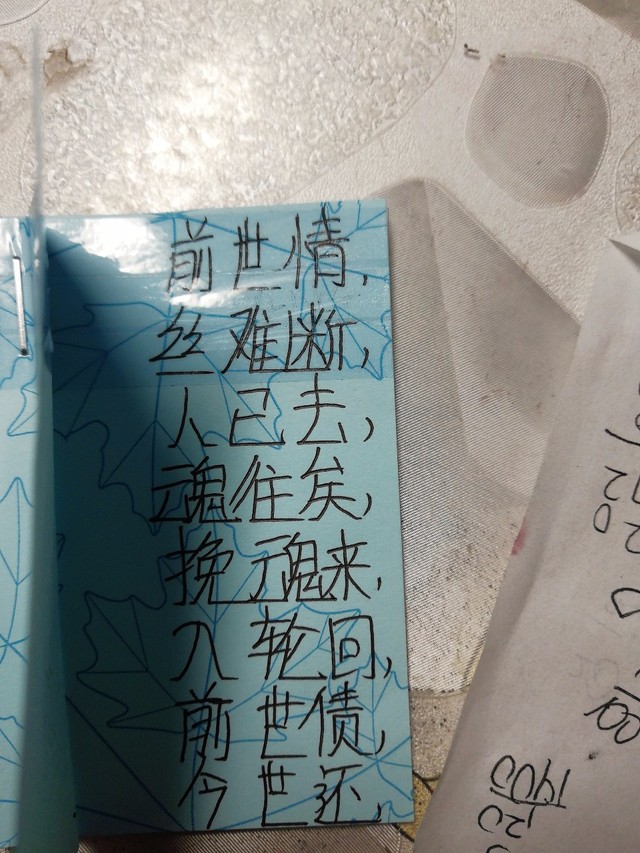 前世情,
丝难断,
人已去,
魂往矣,
挽魂来,
入轮回,
前世债,
今世还,